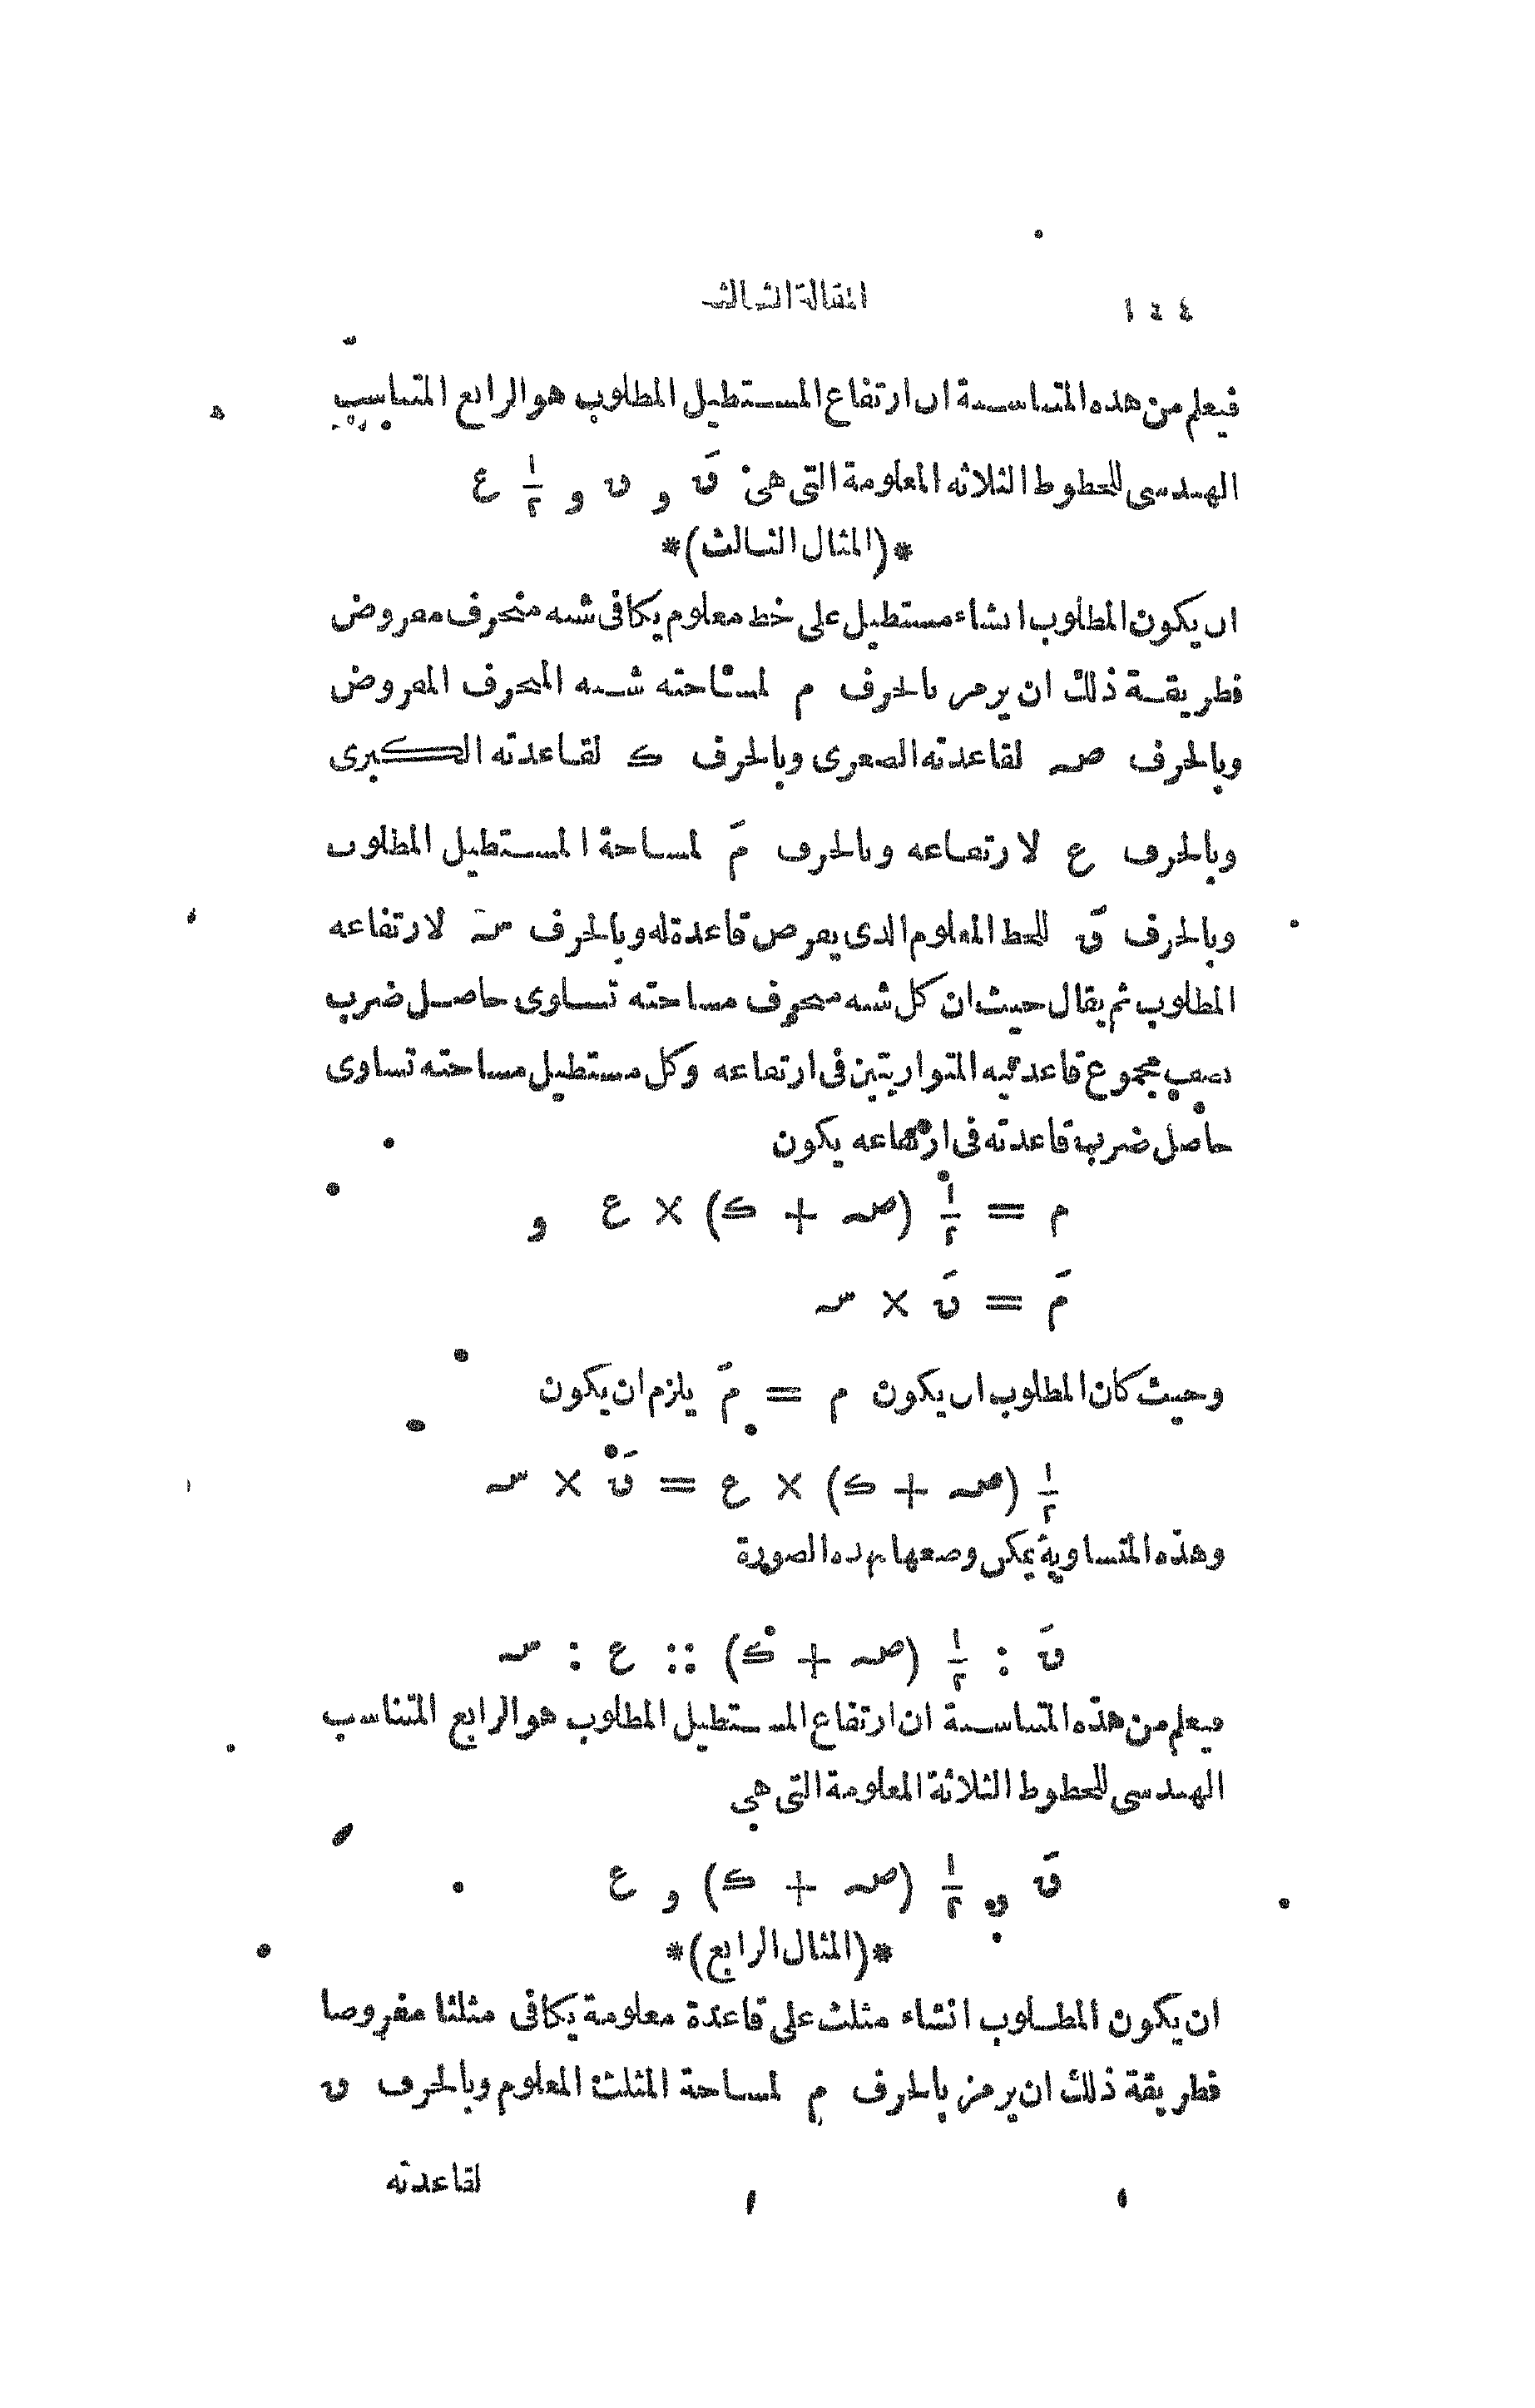 ١٤٤ المقالة الثالثة
فيعلم من هذه المتناسبة ان ارتفاع المستطيل المطلوب هو الرابع المتناسب
الهندسى للخطوط الثلاثه المعلومة التى هى قَ و ق و ١/٢ ع
*(المثال الثالث)*
ان يكون المطلوب انشاء مستطيل على خط معلوم يكافى شبه منحرف مفروض
فطريقة ذلك ان يرمز بالحرف م لمساحته شبه المنحرف المفروض
وبالحرف صـ لقاعدته الصغرى وبالحرف ك لقاعدته الكبرى
وبالحرف ع لارتفاعه وبالحرف مَ لمساحة المستطيل المطلوب
وبالحرف قَ للخط المعلوم الذى يفرض قاعدة له وبالحرف سـ لارتفاعه
المطلوب ثم يقال حيث ان كل شبه منحرف مساحته تساوى حاصل ضرب
نصف مجموع قاعدتيه المتوازيتين فى ارتفاعه وكل مستطيل مساحته تساوى
حاصل ضرب قاعدته فى ارتفاعه يكون
م = ١/٢ (صـ + ك) × ع و
مَ = قَ × سـ
وحيث كان المطلوب ان يكون م = مَ يلزم ان يكون
١/٢ (صـ + ك) × ع = قَ × سـ
وهذه المتساوية يمكن وضعها بهذه الصورة
قَ : ١/٢ (صـ + ك) :: ع : سـ
فيعلم من هذه المتناسبة ان ارتفاع المستطيل المطلوب هو الرابع المتناسب
الهندسى للخطوط الثلاثة المعلومة التى هى
قَ و ١/٢ (صـ + ك) و ع
*(المثال الرابع)*
ان يكون المطلوب انشاء مثلث على قاعدة معلومة يكافى مثلثا مفروضا
فطريقة ذلك ان يرمز بالحرف م لمساحة المثلث المعلوم وبالحرف ق
لقاعدته